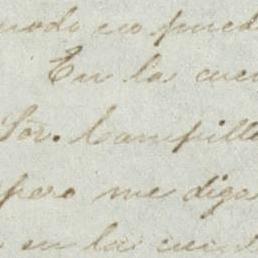 modo no pued
En la cuen
Sor. Campillo
pero me diga
en la cuent